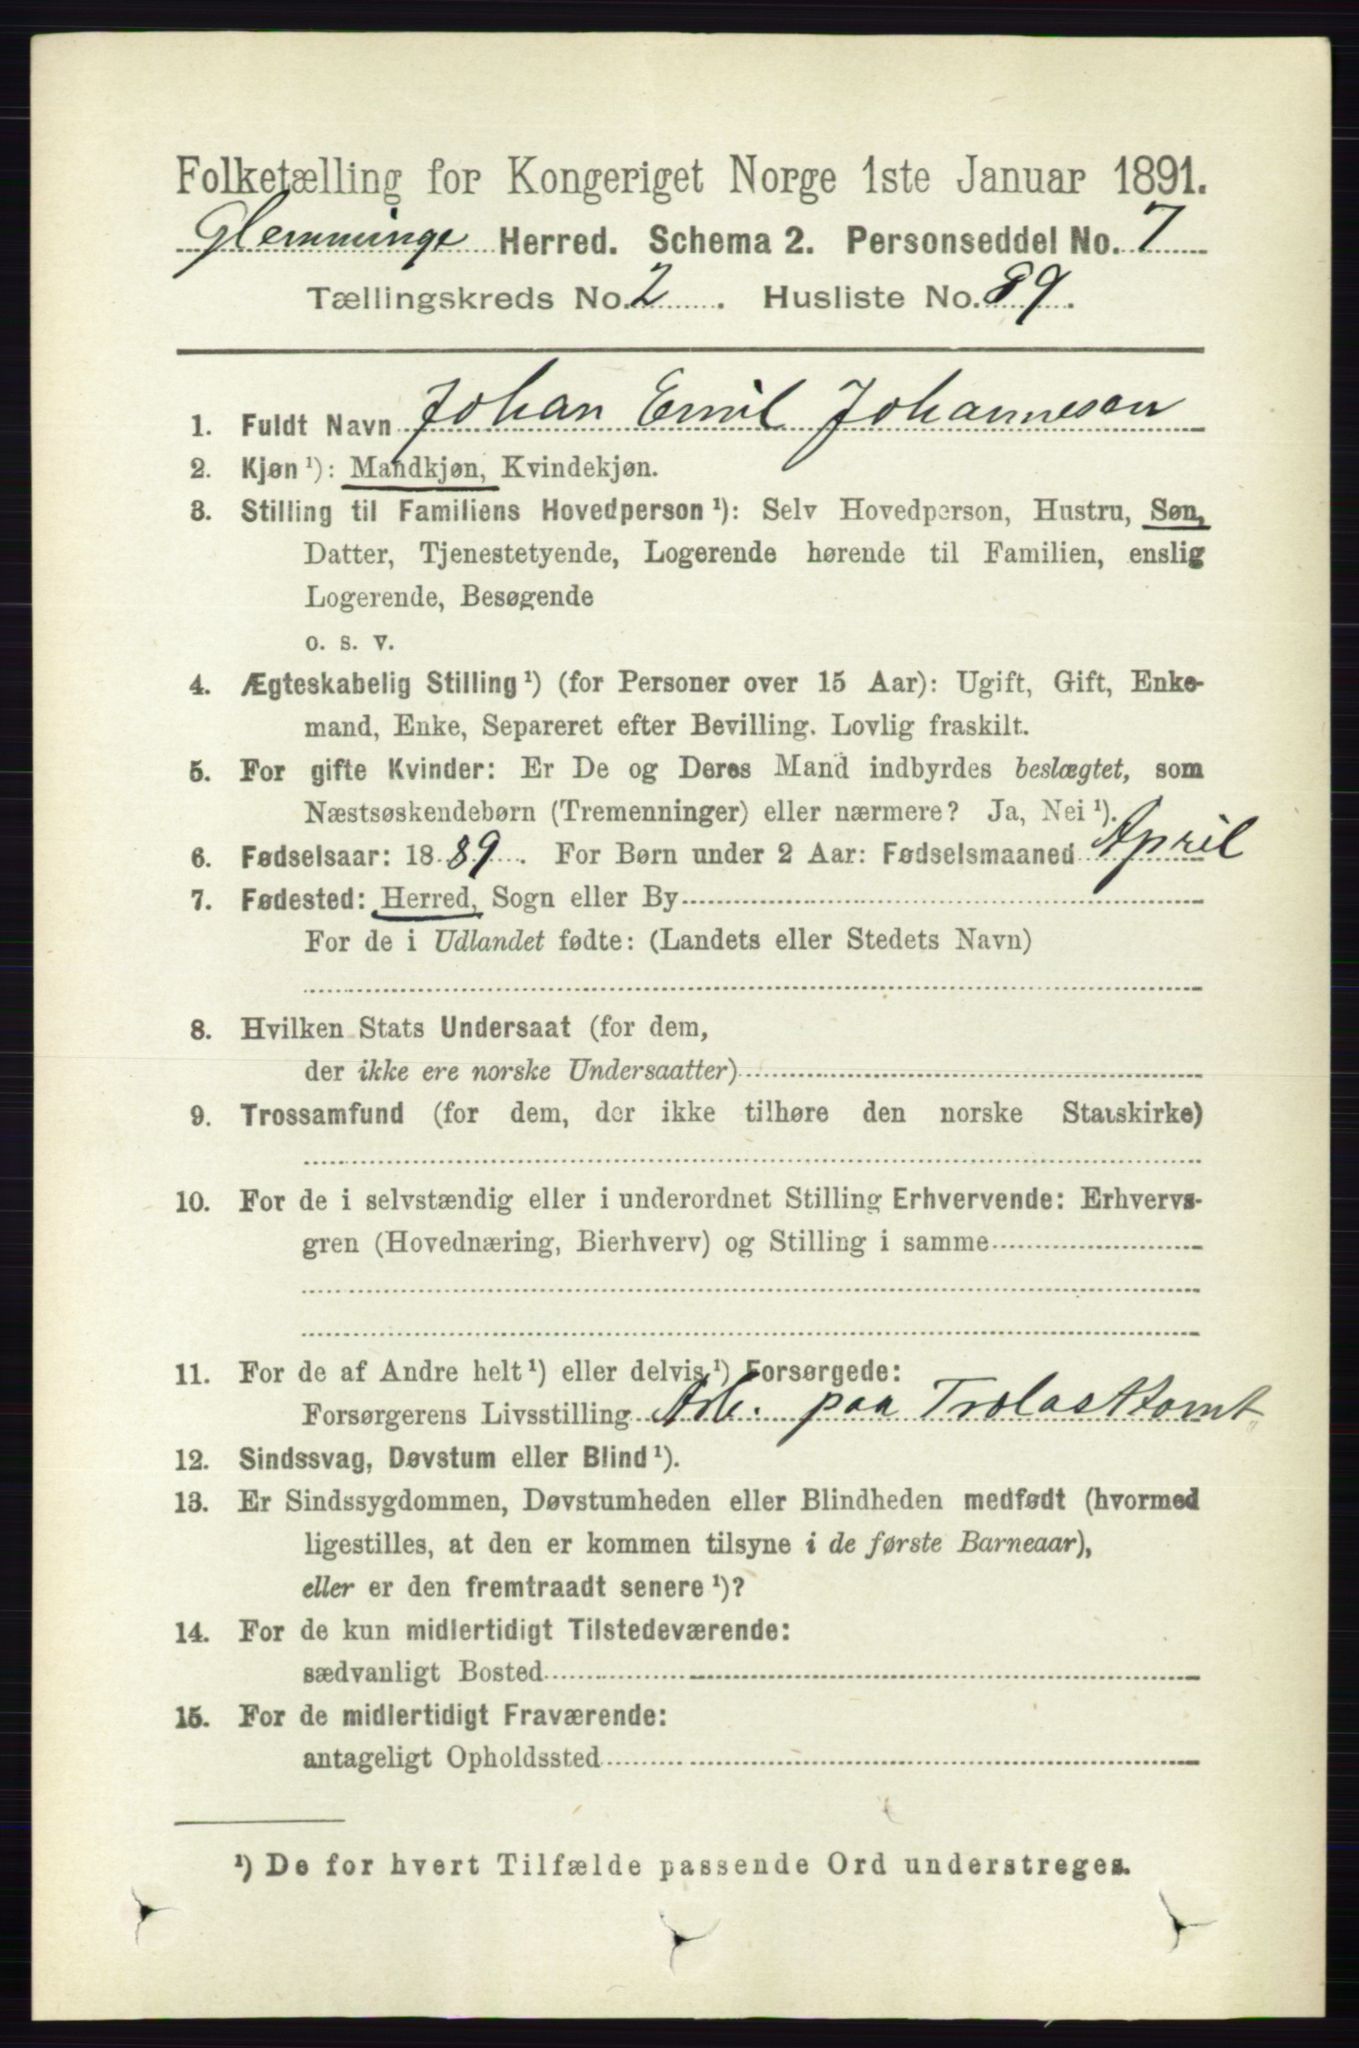 Folketælling for Kongeriget Norge 1ste Januar 1891.
Glemminge Herred. Schema 2. Personseddel No. 7
Tællingskreds No. 2. Husliste No. 89.
1. Fuldt Navn Johan Emil Johannesen
2. Kjøn ¹): Mandkjøn, Kvindekjøn.
3. Stilling til Familiens Hovedperson ¹): Selv Hovedperson, Hustru, Søn,
Datter, Tjenestetyende, Logerende hørende til Familien, enslig
Logerende, Besøgende
o. s. v.
4. Ægteskabelig Stilling ¹) (for Personer over 15 Aar): Ugift, Gift, Enke-
mand, Enke, Separeret efter Bevilling. Lovlig fraskilt.
5. For gifte Kvinder: Er De og Deres Mand indbyrdes beslægtet, som
Næstsøskendebørn (Tremenninger) eller nærmere? Ja, Nei ¹).
6. Fødselsaar: 1889. For Børn under 2 Aar: Fødselsmaaned April
7. Fødested: Herred, Sogn eller By
For de i Udlandet fødte: (Landets eller Stedets Navn)
8. Hvilken Stats Undersaat (for dem,
der ikke ere norske Undersaatter)
9. Trossamfund (for dem, der ikke tilhøre den norske Statskirke)
10. For de i selvstændig eller i underordnet Stilling Erhvervende: Erhvervs-
gren (Hovednæring, Bierhverv) og Stilling i samme
11. For de af Andre helt ¹) eller delvis ¹) Forsørgede:
Forsørgerens Livsstilling Arb. paa Trælasttomt
12. Sindssvag, Døvstum eller Blind ¹).
13. Er Sindssygdommen, Døvstumheden eller Blindheden medfødt (hvormed
ligestilles, at den er kommen tilsyne i de første Barneaar),
eller er den fremtraadt senere ¹)?
14. For de kun midlertidigt Tilstedeværende:
sædvanligt Bosted
15. For de midlertidigt Fraværende:
antageligt Opholdssted
¹) De for hvert Tilfælde passende Ord understreges.